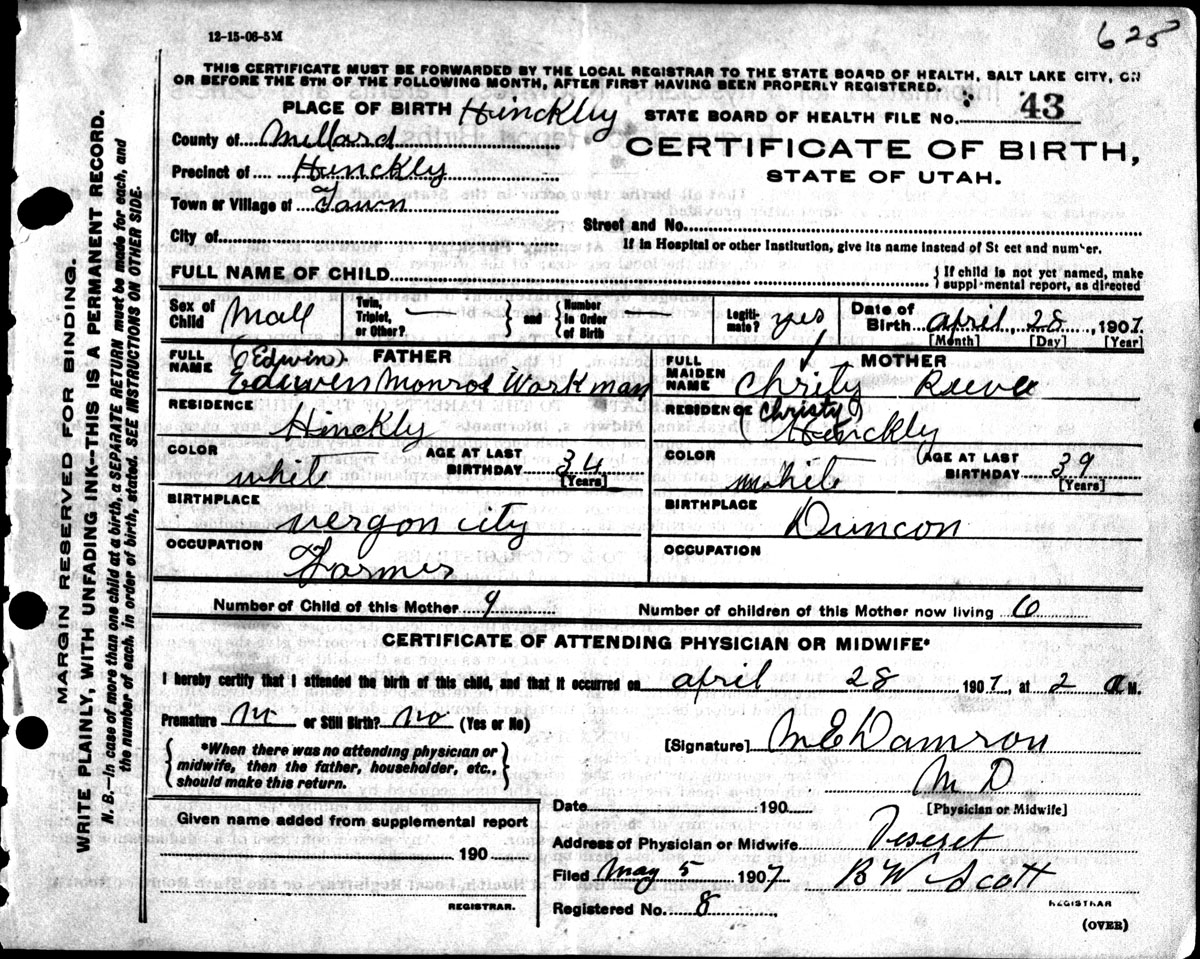 12-15-06-5M
625
THIS CERTIFICATE MUST BE FORWARDED BY THE LOCAL REGISTRAR TO THE STATE BOARD OF HEALTH, SALT LAKE CITY, ON
OR BEFORE THE 5TH OF THE FOLLOWING MONTH, AFTER FIRST HAVING BEEN PROPERLY REGISTERED.
PLACE OF BIRTH Hinckley
STATE BOARD OF HEALTH FILE No. 43
County of Millard
CERTIFICATE OF BIRTH,
Precinct of Hinckly
STATE OF UTAH.
Town or Village of Town
Street and No.
City of
If in Hospital or other Institution, give its name instead of St eet and num er.
FULL NAME OF CHILD
If child is not yet named, make
suppl mental report, as directed
Sex of Child Mall
Twin, Triplet, or Other? —
and
Number in Order of Birth
Legiti-mate? yes
Date of Birth April 28 1907
[Month] [Day] [Year]
FULL NAME FATHER
(Edwin)
Edwven Monroe Workman
FULL MAIDEN NAME MOTHER
Chrity Reeve
(Christy)
RESIDENCE
Hinckly
RESIDENCE
Hinckly
COLOR
white
AGE AT LAST BIRTHDAY 34
[Years]
COLOR
white
AGE AT LAST BIRTHDAY 39
[Years]
BIRTHPLACE
vergon city
BIRTHPLACE
Duncon
OCCUPATION
Farmer
OCCUPATION
Number of Child of this Mother 9
Number of children of this Mother now living 6
CERTIFICATE OF ATTENDING PHYSICIAN OR MIDWIFE*
I hereby certify that I attended the birth of this child, and that it occurred on April 28 1907, at 2 a M.
Premature or Still Birth? No (Yes or No)
*When there was no attending physician or
midwife, then the father, householder, etc.,
should make this return.
[Signature] M E Damron
M D
Date 190
[Physician or Midwife]
Given name added from supplemental report
190
REGISTRAR.
Address of Physician or Midwife Deseret
Filed May 5 1907 B W Scott
REGISTRAR
Registered No. 8
(OVER)
MARGIN RESERVED FOR BINDING.
WRITE PLAINLY, WITH UNFADING INK—THIS IS A PERMANENT RECORD.
N. B.—In case of more than one child at a birth, a SEPARATE RETURN must be made for each, and
the number of each, in order of birth, stated. SEE INSTRUCTIONS ON OTHER SIDE.